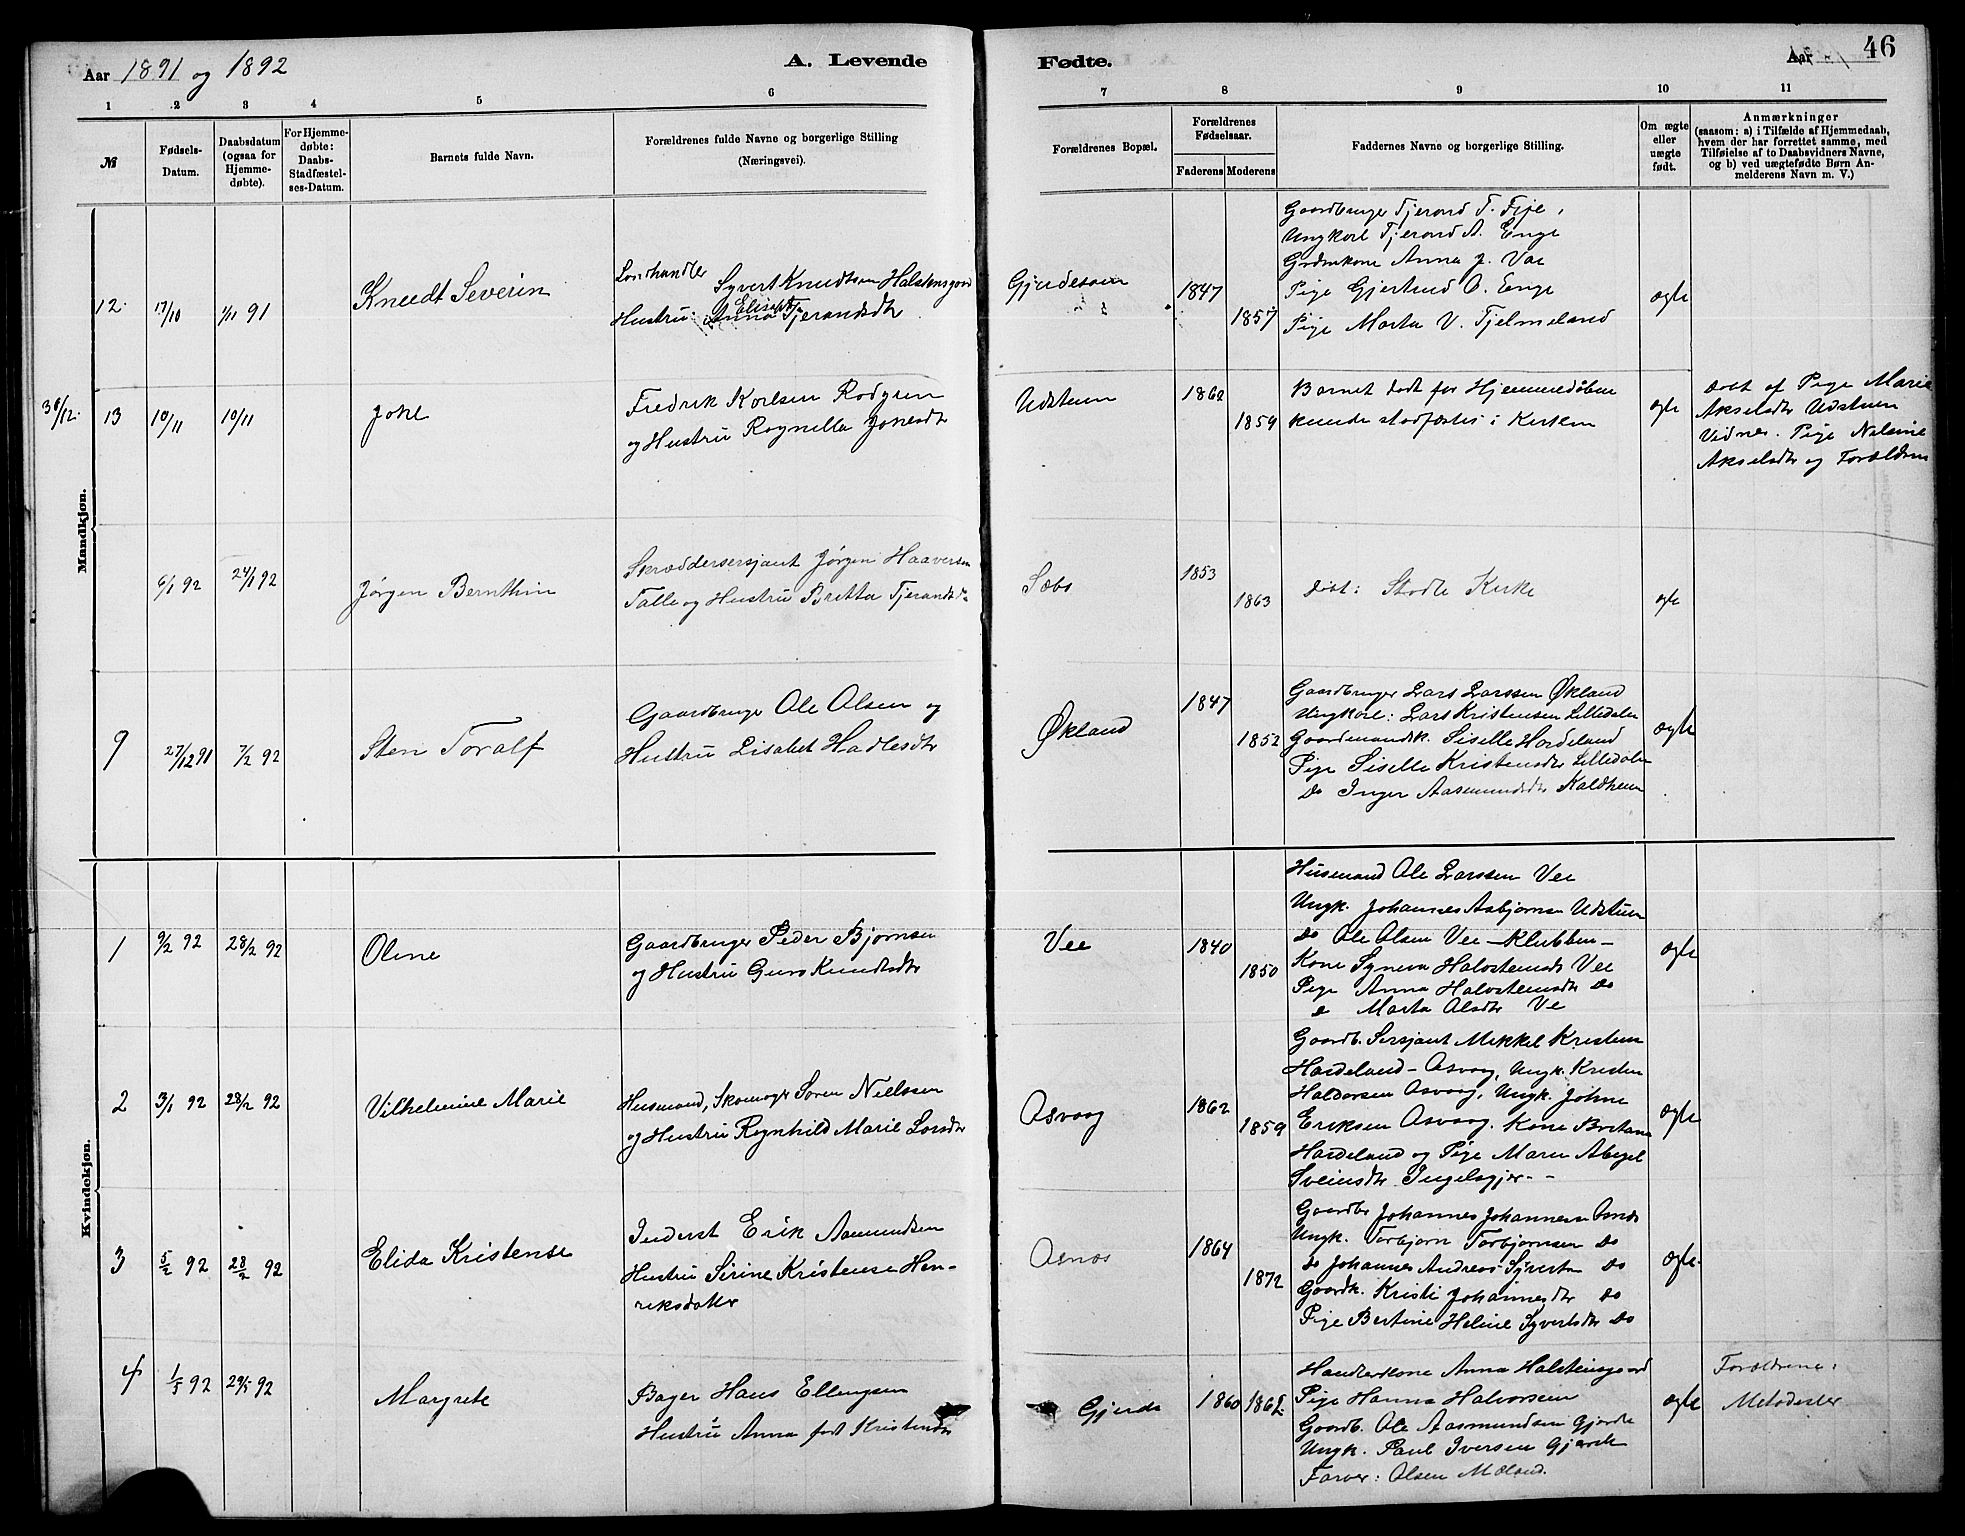 Aar 1891 og 1892
A. Levende
Fødte.
Aar
46
1 2 3 4 5 6 7 8 9 10 11
№
Fødsels-
Datum.
Daabsdatum
(ogsaa for
Hjemme-
døbte).
For Hjemme-
døbte:
Daabs-
Stadfæstel-
ses-Datum.
Barnets fulde Navn.
Forældrenes fulde Navne og borgerlige Stilling
(Næringsvei).
Forældrenes Bopæl.
Forældrenes
Fødselsaar.
Faderens Moderens
Faddernes Navne og borgerlige Stilling.
Om ægte
eller
uægte
født.
Anmærkninger
(saasom: a) i Tilfælde af Hjemmedaab,
hvem der har forrettet samme, med
Tilføielse af to Daabsvidners Navne,
og b) ved uægtefødte Børn An-
melderens Navn m. V.)
Mandkjøn.
12
17/10
1/11 91
Knudt Severin
Landhandler
Syvert Knudtsen Halstensgord
Elisabt
Hustru Anna Tjerandsdt
1847
1857
Gaardbruger Tjerand T. Eije,
Ungkorl Tjerand A. Enge
Grdmkone Anna J. Vae
Pige Gjertrud O. Enge
Pige Marta V. Tjelmeland
ægte
30/12.
13
10/11
10/11
Johl
Fredrik Korlsen Rodgren
og Hustru Rognella Jonesdt
Udstuen
1862
1859
Barnet dødt før Hjemmedøben
kunde stadfæstes i Kirken
ægte
Døbt af Pige Marie
Akselsdtr Udstuen
Vidner. Pige Nelsine
Akselsdtr og Forældren
6/1 92
24/1 92
Jørgen Bernthin
Skræddersersjant Jørgen Haaversen
Talle og Hustru Britta Tjerandsdt
Sæbo
1853
1863
døbt: Stodle Kirke
ægte
9
27/12 91
7/2 92
Sten Toralf
Gaardbruger Ole Olsen og
Hustru Lisabet Hadlesdtr
Økland
1847
1852
Gaardbruger Lars Larssen Økland
Ungkorl: Lars Kristensen Lilledalen
Gaardmandsk. Siselle Hordeland
Pige Siselle Kristensdtr Lilledalen
Do Inger Aasmundsdtr Kaldheim
ægte
Kvindekjøn.
1
9/2 92
28/2 92
Oline
Gaardbruger Peder Bjørnsen
og Hustru Guro Knudtsdtr
Vee
1840
1850
Husmand Ole Larssen Vee
Ungk. Johannes Asbjornsen Udstuen
Do Ole Olsen Vee – Klubben –
Kone Syneva Halvstensdt Vee
Pige Anna Halvstensdtr Do
" Marta Olsdtr Ve
ægte
2
3/1 92
28/2 92
Vilhelmine Marie
Husmand, Skomager Søren Nielssen
og Hustru Ragnhild Marie Larsdtr
Asvaag
1862
1859
Gaardb. Sersjant Mikkel Kristen
Hardeland – Asvaag, Ungk. Kristen
Haldorsen Asvaag, Ungk. Johne
Eriksen Asvaag. Kone Bertana
Hardeland og Pige Maren Abegel
Sveinsdtr Ingelsgjer - -
ægte
3
5/2 92
28/2 92
Elida Kristense
Inderst Erik Aamundsen
Hustru Sirine Kristense Hen-
riksdatter
Osnes
1864
1872
Gaardbr Johannes Johannesen Osnes
Ungk. Torbjorn Torbjornsen Do
Do Johannes Andreas Syvertsn Do
Gaardk. Kristi Johannesdtr Do
Pige Bertine Heline Syvertsdtr Do
ægte.
4
1/5 92
29/5 92
Margrete
Bager Hans Ellengsen
Hustru Anna født Kristensdtr
Gjerde
1860
1862
Handlerkone Anna Halstensgaard
Pige Hanna Halvorsen
Gaardb. Ole Aasmundsen Gjerde
Ungk. Paul Iversen Gjerde
Farver: Olsen Mæland.
ægte
Forældrene:
Metodester